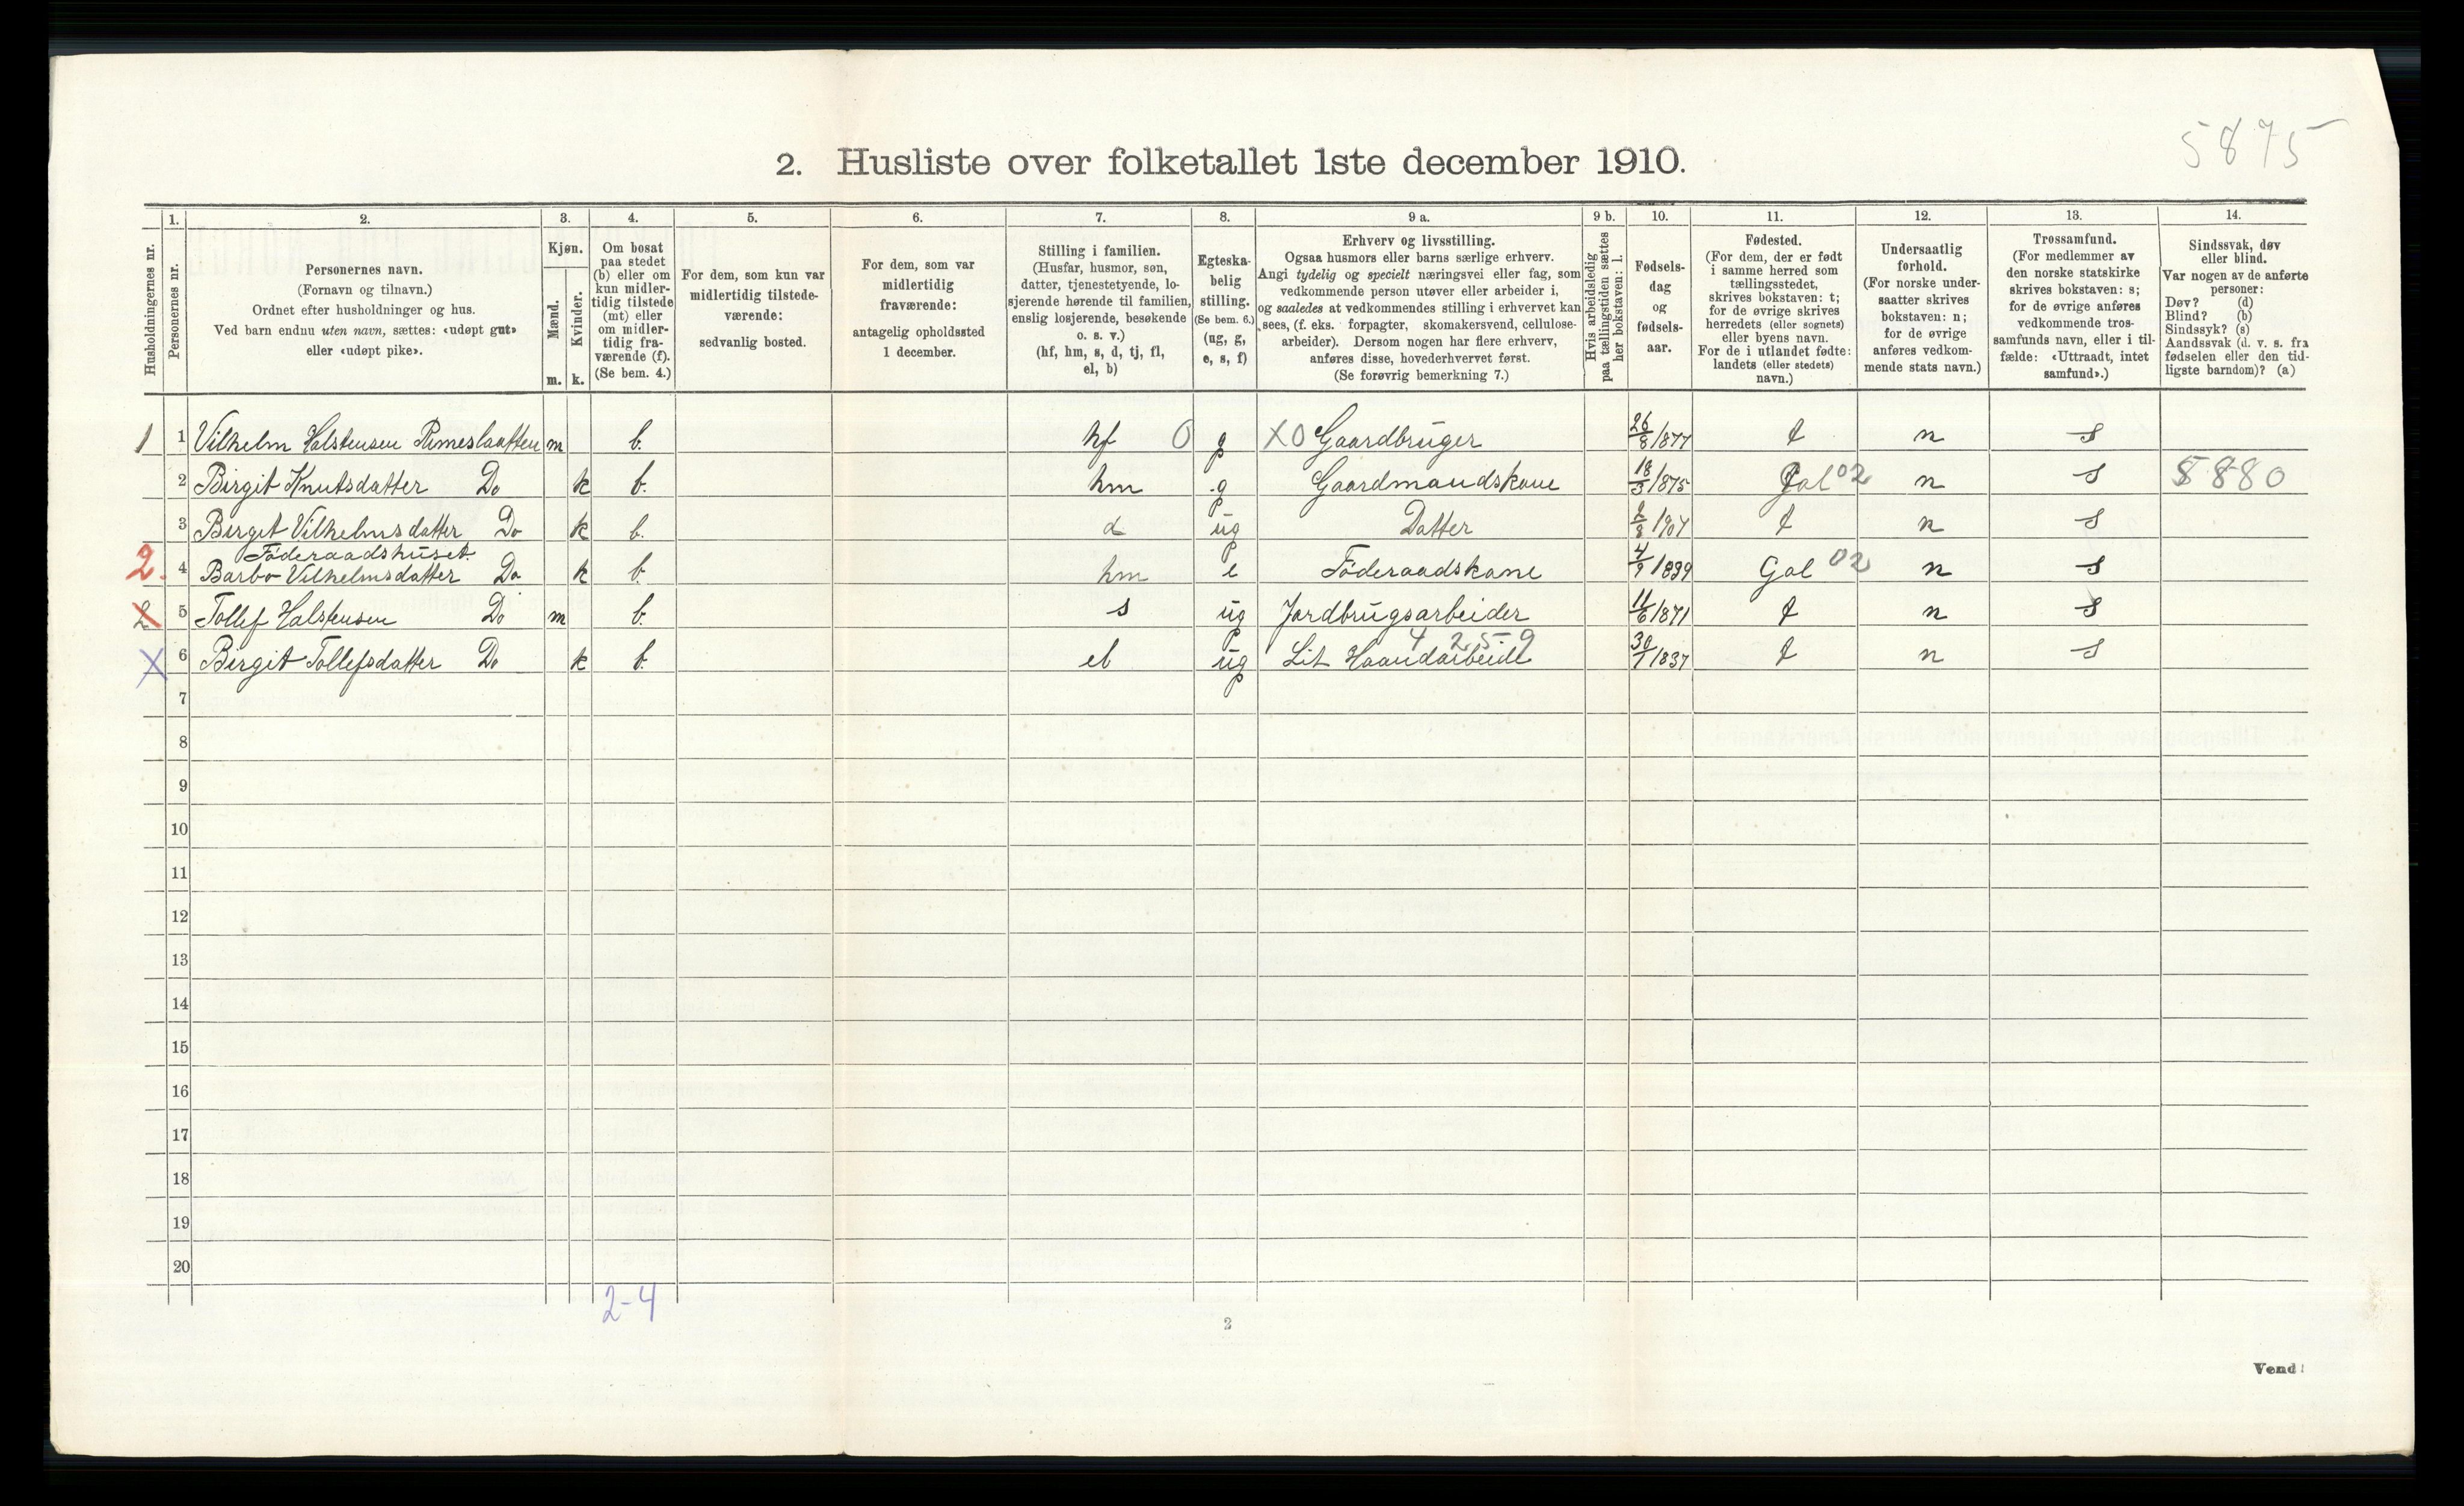 5875
2. Husliste over folketallet 1ste december 1910.
1. 2. 3. 4. 5. 6. 7. 8. 9 a. 9 b. 10. 11. 12. 13. 14.
Husholdningernes nr.
Personernes nr.
Personernes navn.
(Fornavn og tilnavn.)
Ordnet efter husholdninger og hus.
Ved barn endnu uten navn, sættes: «udøpt gut»
eller «udøpt pike».
Kjøn.
Mænd.
Kvinder.
m. k.
Om bosat
paa stedet
(b) eller om
kun midler-
tidig tilstede
(mt) eller
om midler-
tidig fra-
værende (f).
(Se bem. 4.)
For dem, som kun var
midlertidig tilstede-
værende:
sedvanlig bosted.
For dem, som var
midlertidig
fraværende:
antagelig opholdssted
1 december.
Stilling i familien.
(Husfar, husmor, søn,
datter, tjenestetyende, lo-
sjerende hørende til familien,
enslig losjerende, besøkende
o. s. v.)
(hf, hm, s, d, tj, fl,
el, b)
Egteska-
belig
stilling.
(Se bem. 6.)
(ug, g,
e, s, f)
Erhverv og livsstilling.
Ogsaa husmors eller barns særlige erhverv.
Angi tydelig og specielt næringsvei eller fag, som
vedkommende person utøver eller arbeider i,
og saaledes at vedkommendes stilling i erhvervet kan
sees, (f. eks. forpagter, skomakersvend, cellulose-
arbeider). Dersom nogen har flere erhverv,
anføres disse, hovederhvervet først.
(Se forøvrig bemerkning 7.)
Hvis arbeidsledig
paa tællingstiden sættes
her bokstaven: l.
Fødsels-
dag
og
fødsels-
aar.
Fødested.
(For dem, der er født
i samme herred som
tællingsstedet,
skrives bokstaven: t;
for de øvrige skrives
herredets (eller sognets)
eller byens navn.
For de i utlandet fødte:
landets (eller stedets)
navn.)
Undersaatlig
forhold.
(For norske under-
saatter skrives
bokstaven: n;
for de øvrige
anføres vedkom-
mende stats navn.)
Trossamfund.
(For medlemmer av
den norske statskirke
skrives bokstaven: s;
for de øvrige anføres
vedkommende tros-
samfunds navn, eller i til-
fælde: «Uttraadt, intet
samfund».)
Sindssvak, døv
eller blind.
Var nogen av de anførte
personer:
Døv? (d)
Blind? (b)
Sindssyk? (s)
Aandssvak (d. v. s. fra
fødselen eller den tid-
ligste barndom)? (a)
1 1 Vilhelm Halstensen m b. hf 0 g X0 Gaardbruger 26/8 1877 t n s
2 Birgit Knutsdatter Do k b. hm g Gaardmandskone 18/3 1875 Gol 02 n s 5880
3 Birget Vilhelmsdatter Do k b. d ug Datter 907 t n s
Föderaadshuset
2. 4 Barbo Vilhelmsdatter Do k b. hm e Föderaadskone Gol 02 n s
2 5 Tollef Halstensen Do m b. s ug Jordbrugsarbeider 11/6 1871 t n s
4 25-9
X 6 Birgit Tollefsdatter Do k b el ug Lit Haandarbeide 1837 t n s
7
8
9
10
11
12
13
14
15
16
17
18
19
20
2-4
2
Vend!